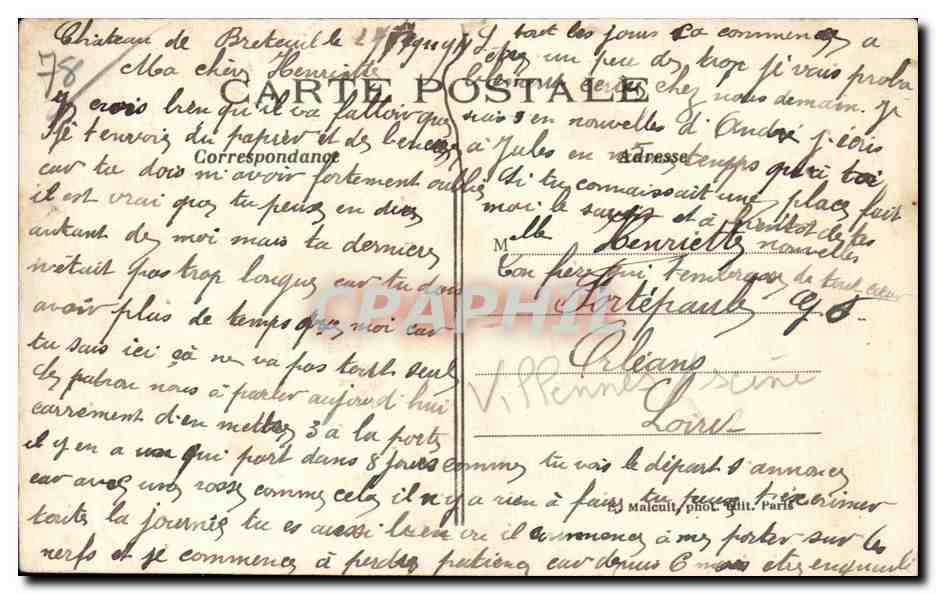 Château de Breteuil le
78
Ma chère Henriette
CARTE POSTALE
je crois bien qu'il va falloir que
je t'envois du papier et des
Correspondance
car tu dois m'avoir fortement oublié
il est vrai que tu peux en dire
autant de moi mais ta dernière
n'était pas trop longue car tu dois
avoir plus de temps que moi car
tu sais ici çà ne va pas tout seul
le patron nous à parler aujourd'hui
carrément d'en mettre 3 à la porte
il y en a un qui part dans 8 jours comme tu vois le départ s'annonce
car avec une rosse comme cela il n'y a rien à faire tu peux t'escrimer
toute la journée tu es aussi bien il commence à me porter sur les
nerfs et je commence à perdre patience car depuis 6 mois être engueulé
tout les jours ca commence a
être un peu de trop je vais
chez nous demain. je
suis en nouvelles d'André j'écris
à Jules en même temps qu'à toi
Adresse
Si tu connaissait une place fait
moi le savoir et à bientot de tes
nouvelles
Melle Henriette
Ton frère qui t'embrasse de tout cœur
Orléans
Loiret
Villennes s/ seine
E. Malcuit, phot. édit. Paris
CPAPHIL